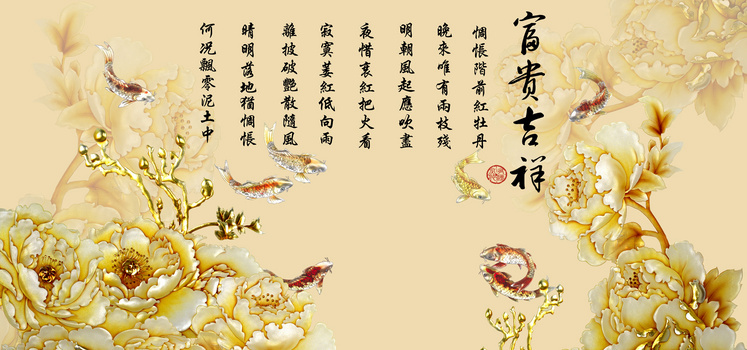 富貴吉祥
惆悵階前紅牡丹
晚來唯有兩枝殘
明朝風起應吹盡
夜惜衰紅把火看
寂寞萎紅低向雨
離披破艷散隨風
晴明落地猶惆悵
何況飄零泥土中